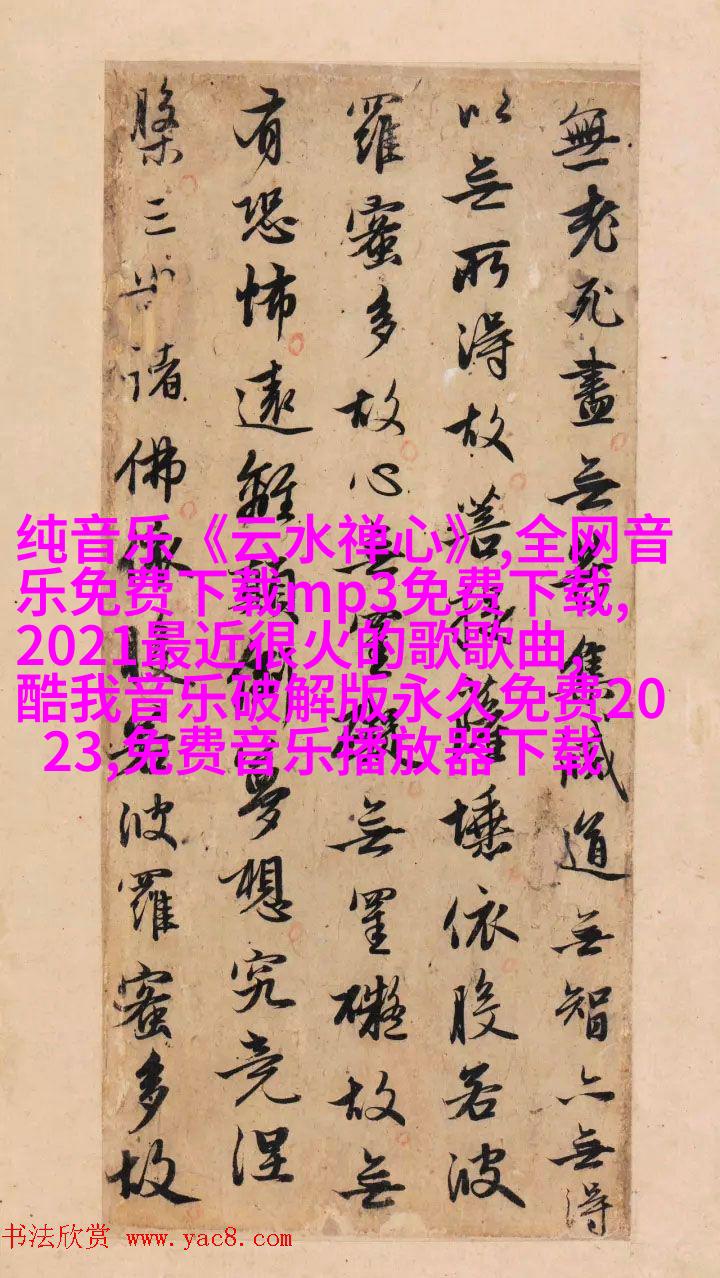 無老死盡无苦集滅道无智亦无得
以无所得故菩提薩埵依般若波
羅蜜多故心无罣礙无罣礙故无
有恐怖遠離顛倒夢想究竟涅
槃三世諸佛依般若波羅蜜多故
纯音乐《云水禅心》,全网音
乐免费下载mp3免费下载,
2021最近很火的歌歌曲,
酷我音乐破解版永久免费20
23,免费音乐播放器下载
书法欣赏 www.yac8.com